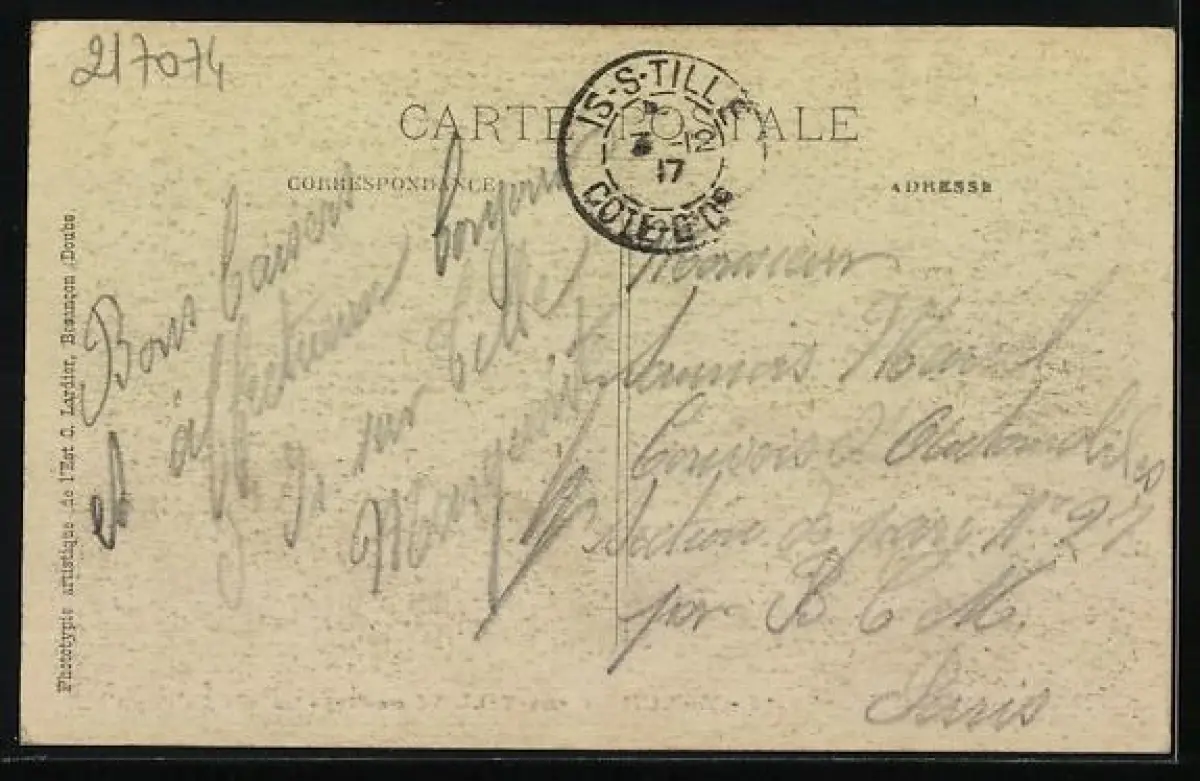 217074
CARTE POSTALE
CORRESPONDANCE
ADRESSE
IS-S-TILLE
17
COTE-D'OR
Bons baisers
et affectueux bonjours
Is sur Tille
Marguerite
Monsieur
Marcel
Convois d'Automobiles
Section de parc N° 27
par B C M.
Paris
Phototypie artistique de l'Est C. Lardier, Besançon (Doubs)